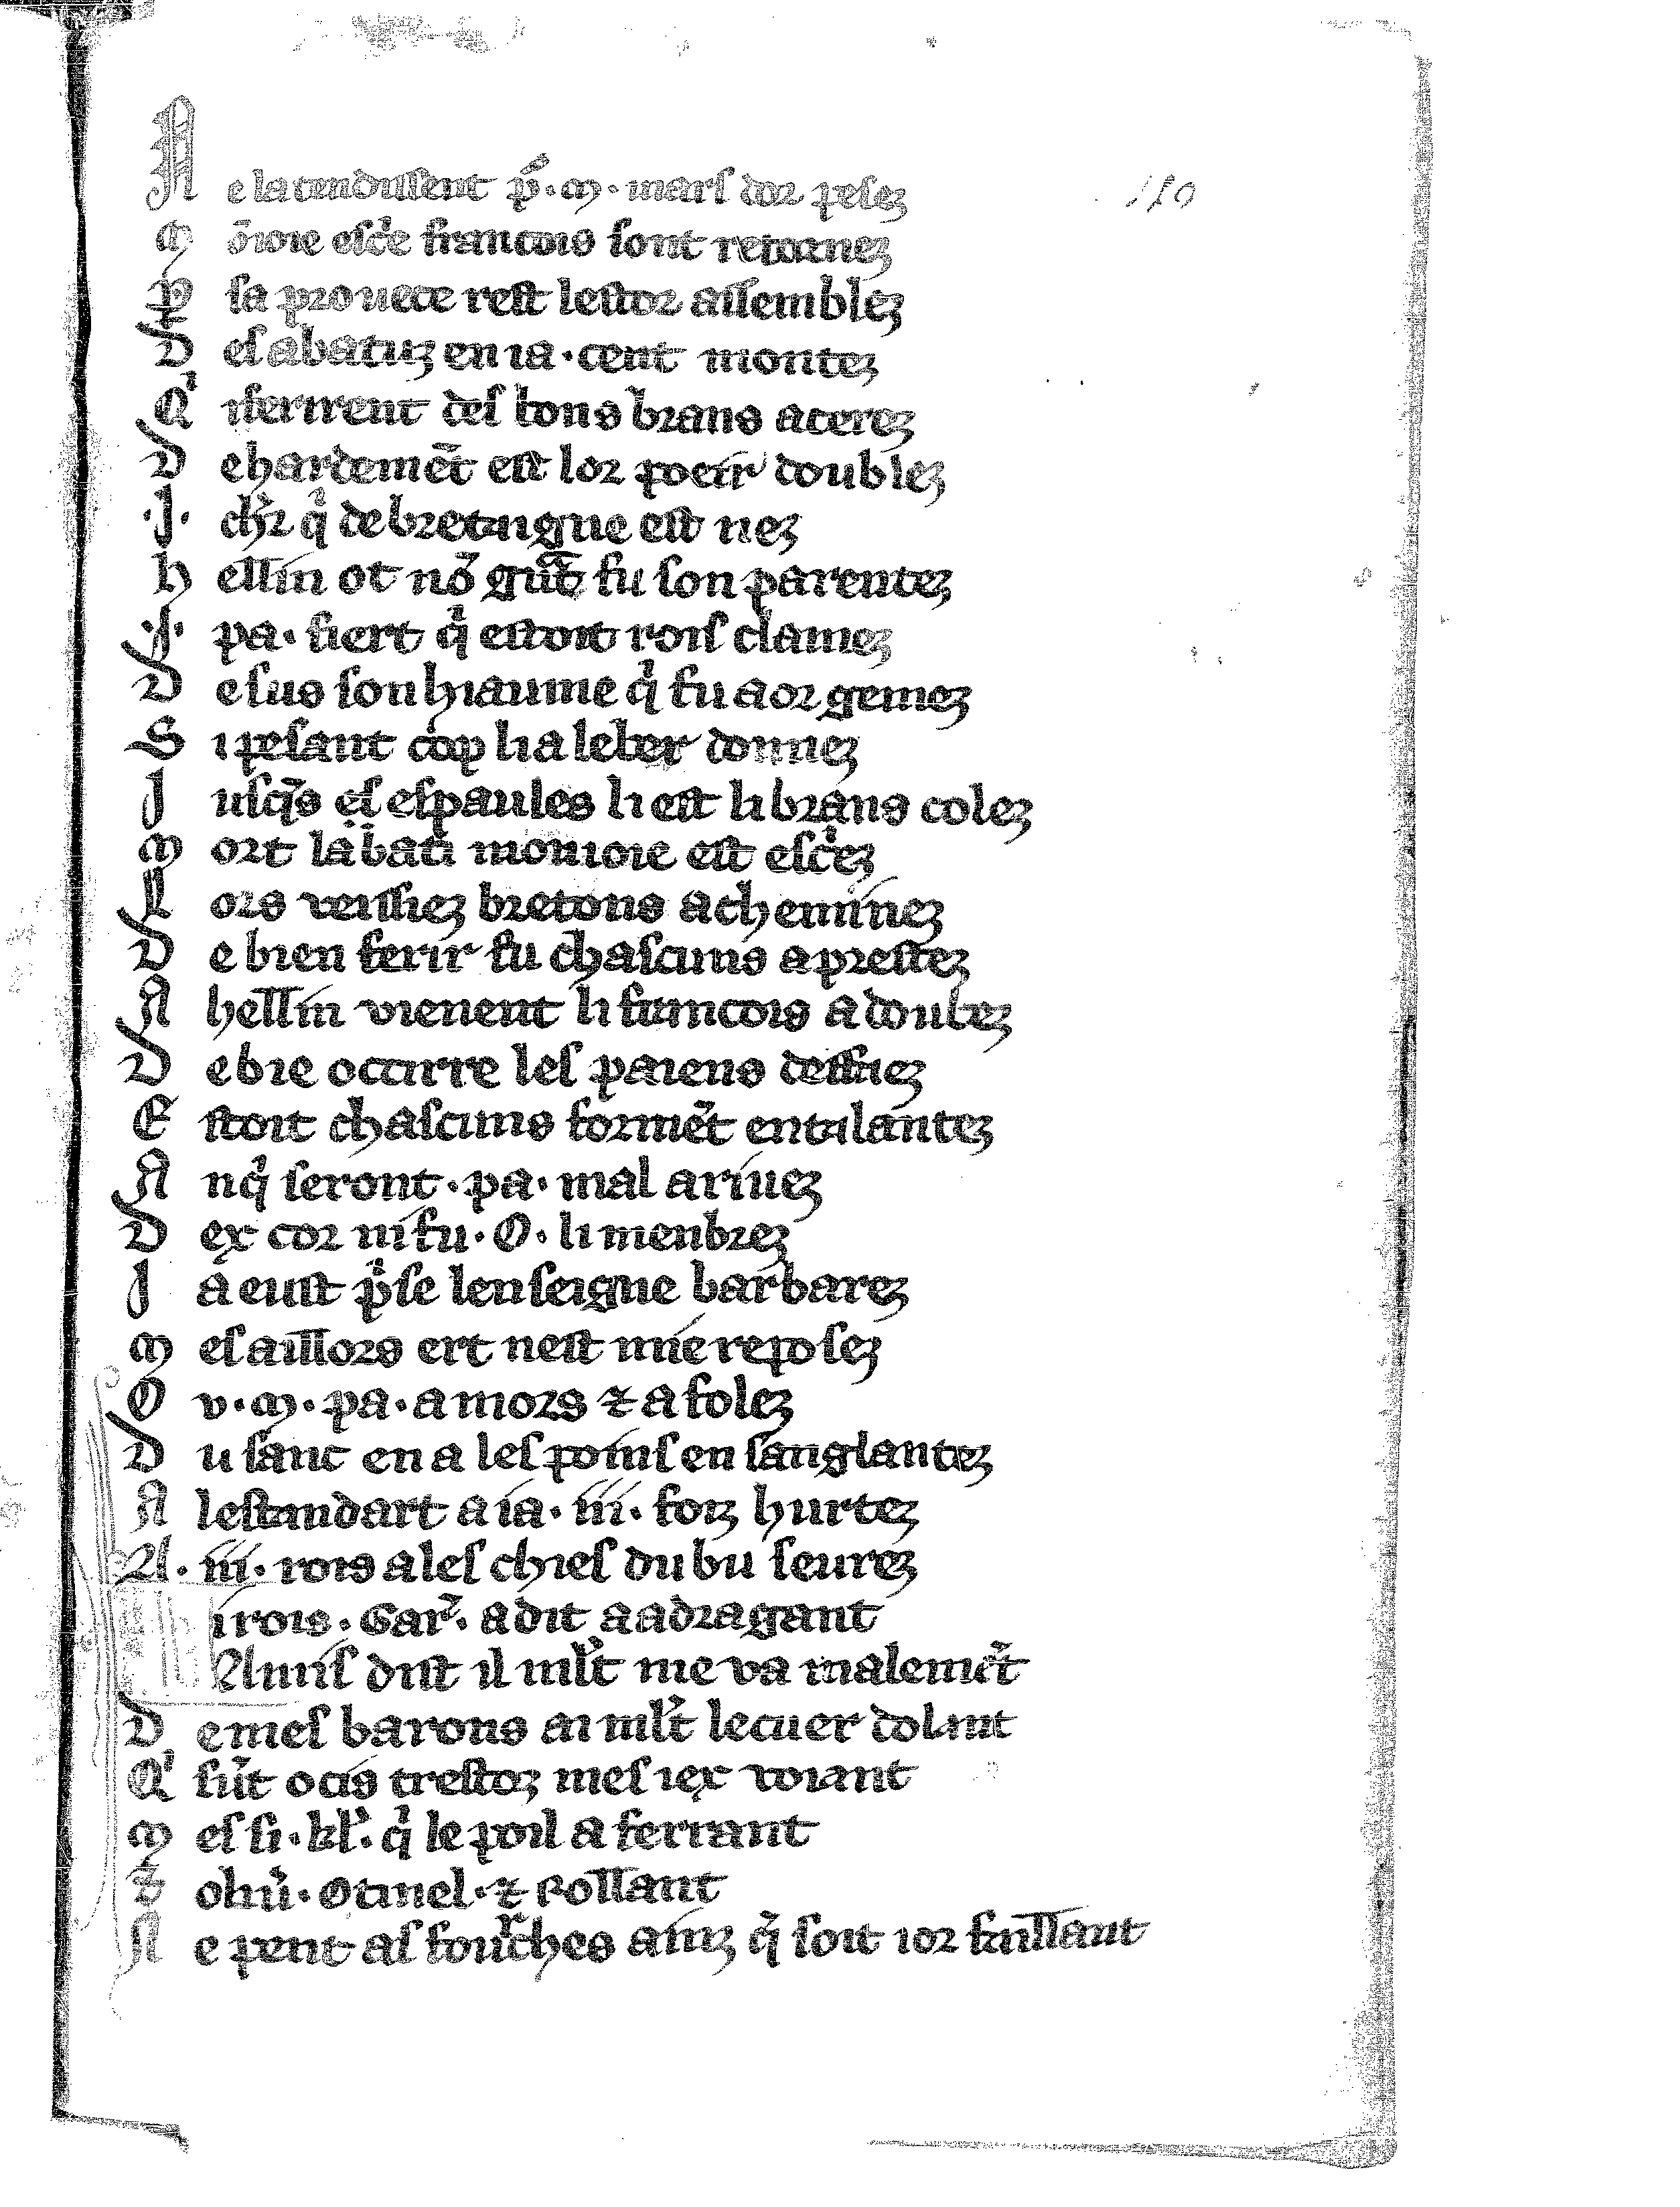 150
N e latendissent p̄ · m · mars dor pesez
m ōioie esc̓e francois sont retornez
P sa prouece rest lestor assemblez
D es abatuz en ia · cent montez
Q' i ferirent des bons brans acerez
D e hardemēt est lor poeir doublez
· I · ch'r q̓ de bretaigne est nez
h ellin ot nō gūt fu son parentez
· I · pa · fiert q̓ estoit rois clamez
D esus son hiaume q̓ fu a or gemez
S i pesant cop li a leber donnez
J usq̄s es espaules li est li brans colez
m ort labati monioie est esc̓ez
L ors veissiez bretons acheminez
D e bien ferir fu chascuns aprestez
A hellin vienent li francois adoubez
D e bie occirre les paiens deffiez
E stoit chascuns formēt entalantez
A nq̓ seront · pa · mal ariuez
D ex cor ni fu · O · li menbrez
J a eust p̓se lenseigne barbarez
m es aillors ert nest mie reposez
O v · m · pa · a mors ⁊ afolez
D u sanc en a les poins ensanglantez
A lestandart a ia · iii · foiz hurtez
A · iii · rois a les chies du bu seurez
L i rois · Gar̓ · a dit a adragant
Amis dist il ml't me va malemēt
D e mes barons ai ml't le cuer dolant
Q' sūt ocis trestoz mes iex voiant
m es si · kl' · q̓ le poil a ferrant
⁊ oliu̓ · Otinel · ⁊ Rollant
N e pent as fourches ainz q̄ soit ior faillant